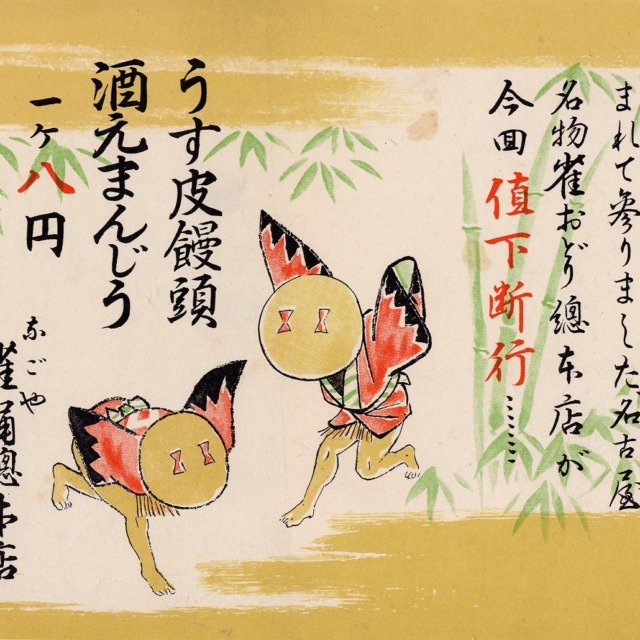 まれて参りました名古屋
名物雀おどり總本店が
今回値下断行……
うす皮饅頭
酒元まんじう
一ヶ八円
なごや
雀踊總本店